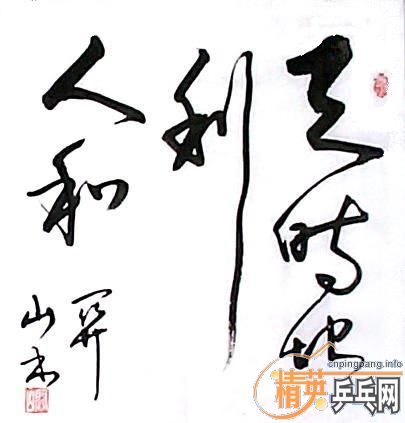 天时地
利
人和
cnpingpang.info
精英乒乓网